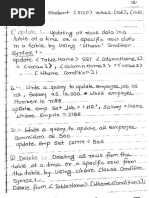 Student (STID) values (106), (108)
Update :- Updating all rows data in a
table at a time or a specific row data
in a table by using 'where' Condition.
Syntax :-
Update <Table Name> SET <Column Name1>
= <Value1>, <Column Name2> = <Value2>
[Where Condition];
Employee Salary as 10,000 whose Employee
Number is 7788
update Emp set Job = 'HR', Salary = 10000
Where Empno = 7788;
Write a query to update all employee
Commission as 500.
update Emp Set Comm = 500
Delete :- Deleting all rows from the
table at a time or a specific row from
the table by using where clause Condition
Syntax :-
Delete from <Table Name> [Where Condition];